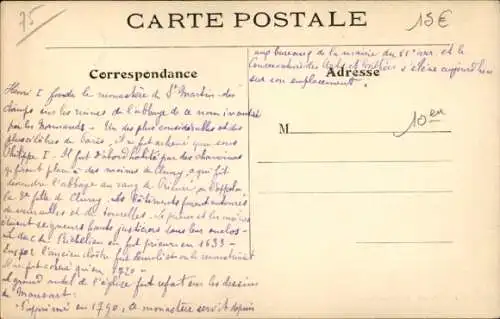 75
CARTE POSTALE
15€
Correspondance
Adresse
aux bureaux de la mairie du 11e arr. et le
Conservatoire des Arts et Métiers s'élève aujourd'hui
sur son emplacement.
M
10er
Henri I fonda le monastère de St Martin des
champs sur les ruines de l'abbaye de ce nom
par les Normands - Un des plus considérables et des
plus célèbres de Paris, il ne fut achevé que sous
Philippe I. Il fut d'abord habité par des chanoines
qui firent place à des moines de Cluny, ce qui fit
descendre l'abbaye au rang de Prieuré, on l'appela
la 3e fille de Cluny. Les bâtiments furent entourés
de murailles et de tourelles. Le prieur et les moines
étaient seigneurs hauts justiciers sous leur enclos -
le duc de Richelieu en fut prieur en 1633 -
l'ancien cloître fut démoli et on le reconstruisit
il ne fut qu'en 1720 -
Le grand autel de l'église fut refait sur les dessins
de Mansart.
Supprimé en 1790, ce monastère servit depuis